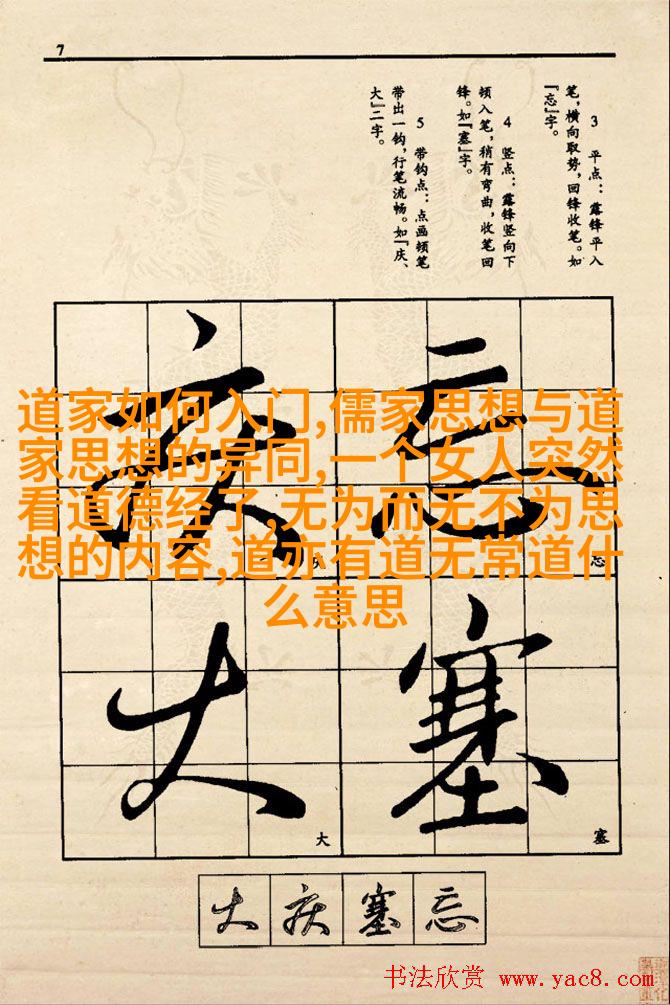 7
3 平点：露锋平入
笔，横向取势，回锋收笔。如
『忘』字。
4 竖点：露锋竖向下
顿入笔，稍有弯曲，收笔回
锋。如『塞』字。
5 带钩点：点画顿笔
带出一钩，行笔流畅。如『庆、
大』二字。
忘
庆
道家如何入门,儒家思想与道
家思想的异同,一个女人突然
看道德经了,无为而无不为思
想的内容,道亦有道无常道什
么意思
忘
庆
塞
大
塞
大
大 庆 塞 忘
书法欣赏 www.yac8.com